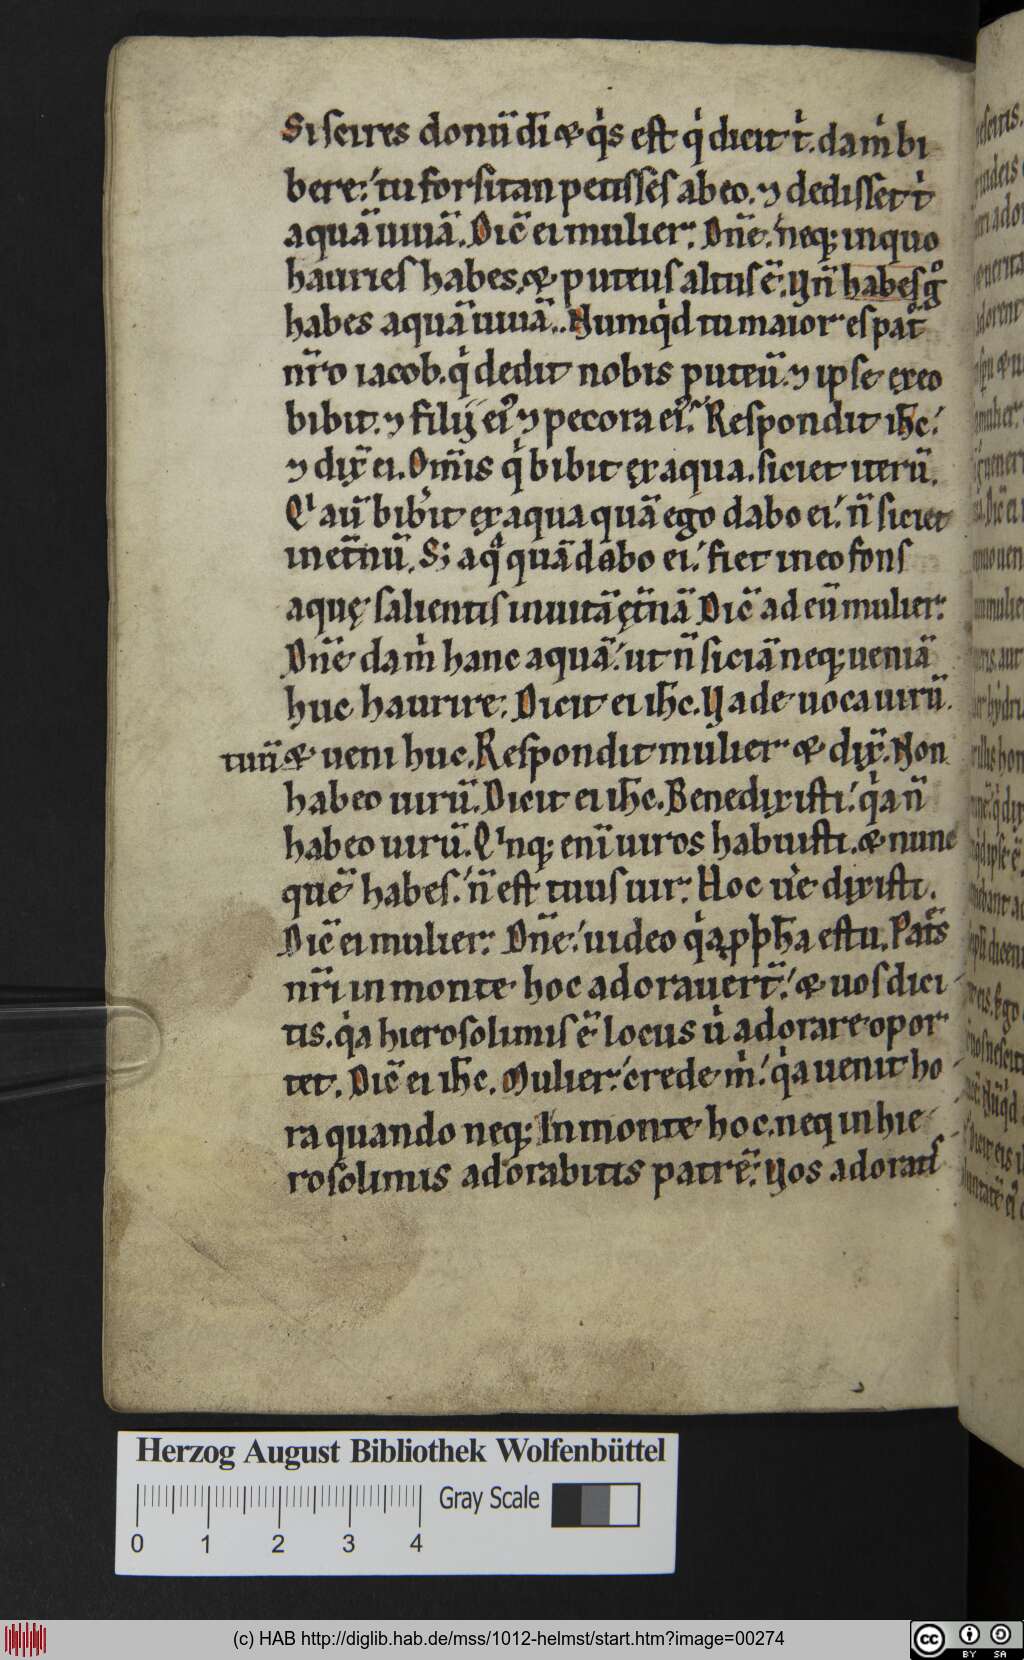 Si scires donū dī & q̇s est q̇ dicit t̄. dam̄ bi
bere:ʹ tu forsitan petisses ab eo. ⁊ dedisset t̄
aquā uiuā. Dic̄ ei mulier. Dn̄e.ʹ neq; in quo
hauries habes. & puteus altus ē. Vn̄ habes gͦ
habes aquā uiuā. Numq̇d tu maior es pat̄
nr̄o iacob. q̇ dedit nobis puteū. ⁊ ipse ex eo
bibit. ⁊ filij eiꝰ ⁊ pecora eiꝰ. Respondit ih̄c.ʹ
⁊ dix̄ ei. Om̄is q̇ bibit ex aqua. siciet iterū.
Qi aū bibit ex aqua quā ego dabo ei.ʹ n̄ siciet
in et̄nū. S; aq̊ quā dabo ei.ʹ fiet in eo fons
aquę salientis in uitā ęt̄nā Dic̄ ad eū mulier.
Dn̄e dam̄ hanc aquā.ʹ ut n̄ siciā neq; ueniā
huc haurire. Dicit ei ih̄c. Vade uoca uirū.
tuū & ueni huc. Respondit mulier & dix̄. Non
habeo uirū. Dicit ei ih̄c. Bene dixisti.ʹ q̇a n̄
habeo uirū. Qinq; enī uiros habuisti. & nunc
quē habes.ʹ n̄ est tuus uir. Hoc ūe dixisti.
Dic̄ ei mulier. Dn̄e.ʹ uideo q̇a ꝓph̄a es tu. Pat̄s
nr̄i in monte hoc adorauert̄.ʹ & uos dici
tis. q̇a hierosolimis ē locus u̇ adorare opor
tet. Dic̄ ei ih̄c. Mulier.ʹ crede m̄.ʹ q̇a uenit ho
ra quando neq; In monte hoc. neq in hie
rosolimis adorabitis patrē. Vos adoratis
Herzog August Bibliothek Wolfenbüttel
Gray Scale
0 1 2 3 4
(c) HAB http://diglib.hab.de/mss/1012-helmst/start.htm?image=00274
cc BY SA